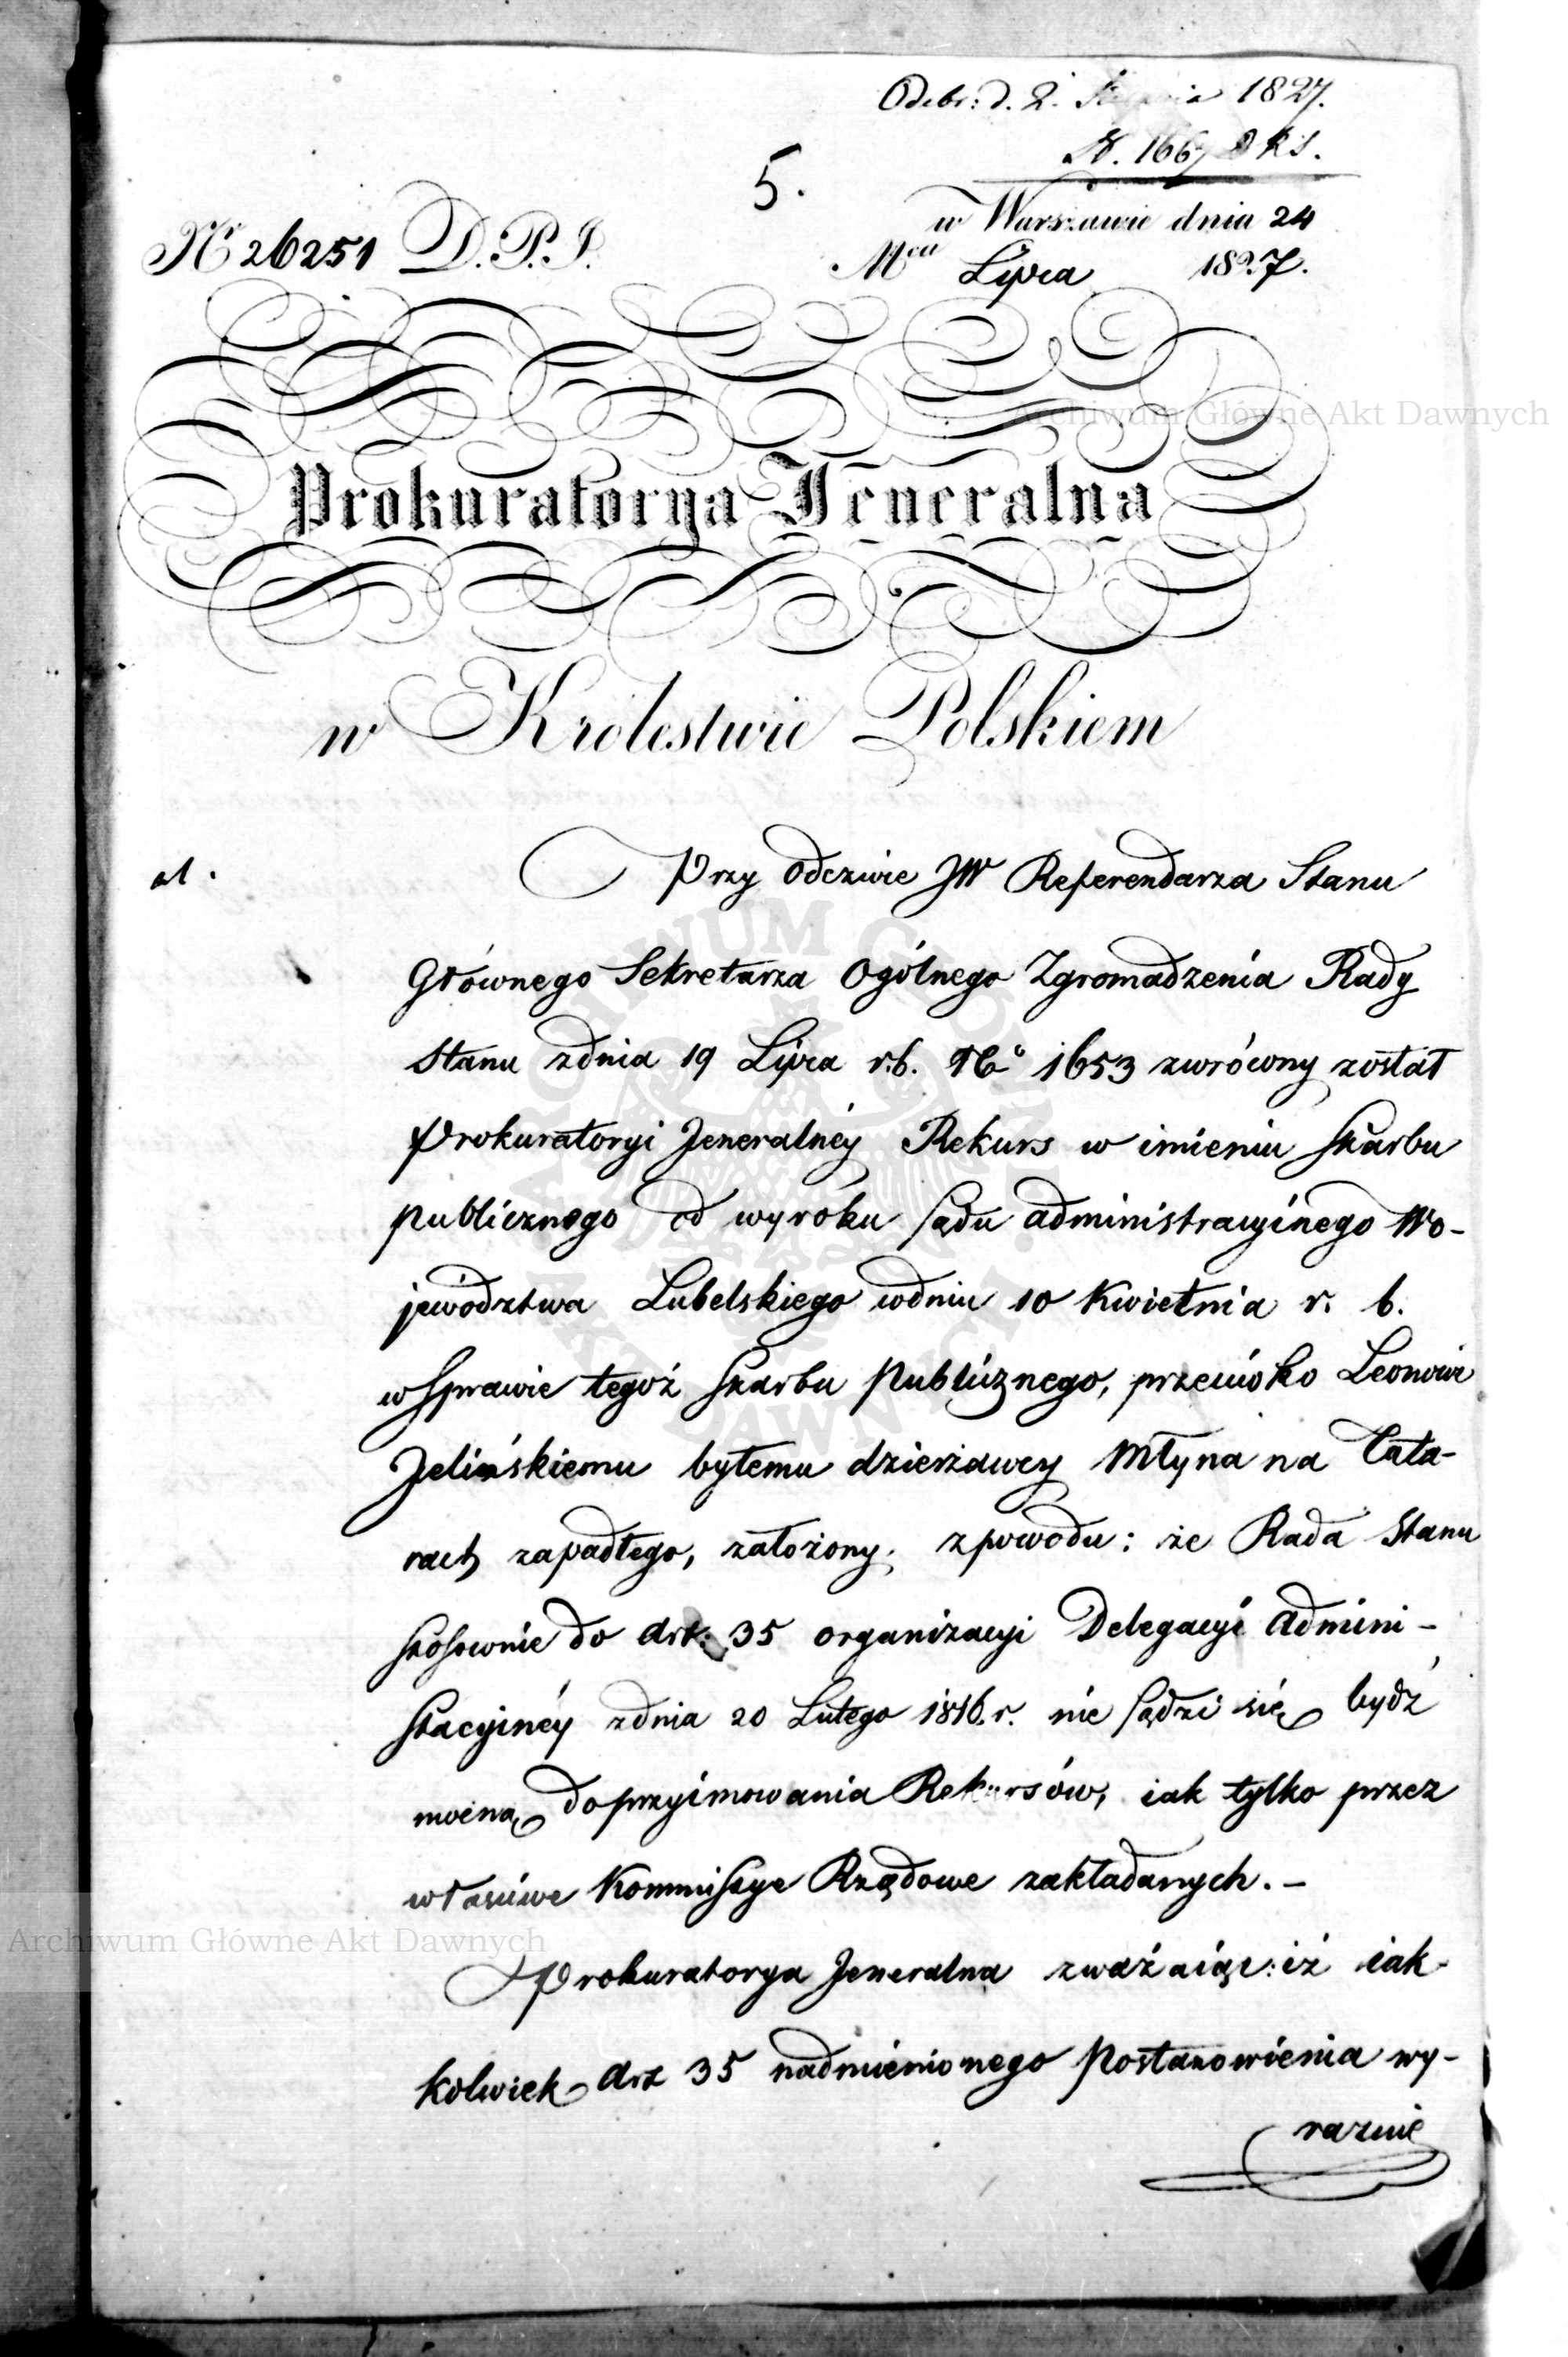 Odebr: d. 2. Sierpnia 1827.
N. 1667 D k s.
5.
w Warszawie dnia 24
Nr 26251 D.P.J.
Mca Lipca 1827.
Archiwum Główne Akt Dawnych
Prokuratorya Jeneralna
w Królestwie Polskiem
al.
Przy Odezwie JW Referendarza Stanu
Głównego Sekretarza Ogólnego Zgromadzenia Rady
Stanu zdnia 19 Lipca r.b. No 1653 zwrócony został
Prokuratoryi Jeneralnéy Rekurs w imieniu Skarbu
publicznego od wyroku Sądu administracyinego Wo-
jewództwa Lubelskiego wdniu 10 Kwietnia r. b.
w Sprawie tegoż Skarbu Publicznego, przeciwko Leonowi
Jelińskiemu byłemu dzierżawcy Młyna na Tata-
rach zapadłego, założony. zpowodu: że Rada Stanu
stosownie do Art: 35 organizacyi Delegacyi Admini-
stacyinéy zdnia 20 Lutego 1816. r. nie sądzi się bydź
mocną do przyimowania Rekursów, iak tylko przez
właściwe Kommissye Rządowe zakładanych. -
Archiwum Główne Akt Dawnych
Prokuratorya Jeneralna zważaiąc: iż iak-
kolwiek Art 35 nadmienionego Postanowienia wy-
raznie